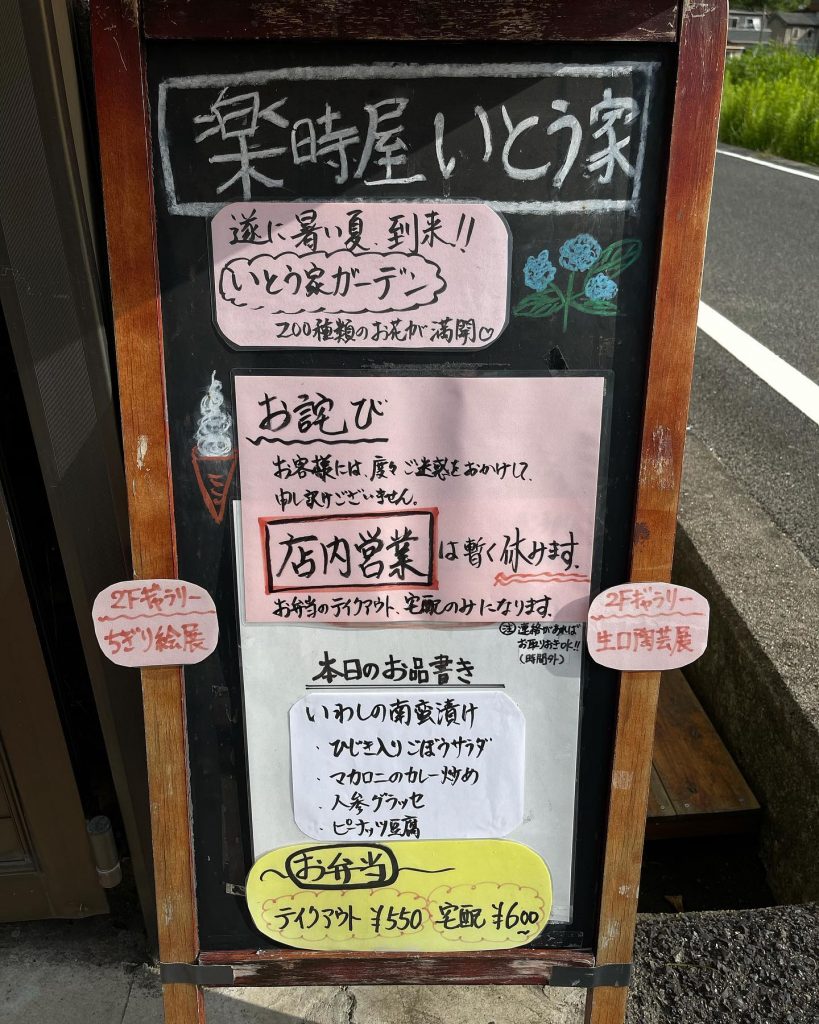 楽時屋いとう家
遂に暑い夏、到来!!
いとう家ガーデン
200種類のお花が満開♡
お詫び
お客様には、度々ご迷惑をおかけして、
申し訳けございません。
店内営業は暫く休みます。
お弁当のテイクアウト、宅配のみになります。
注 連絡があれば
お取りおきOK!!
(時間外)
2Fギャラリー
ちぎり絵展
2Fギャラリー
生口陶芸展
本日のお品書き
いわしの南蛮漬け
・ひじき入りごぼうサラダ
・マカロニのカレー炒め
・人参グラッセ
・ピーナッツ豆腐
お弁当
テイクアウト ¥550 宅配 ¥600~